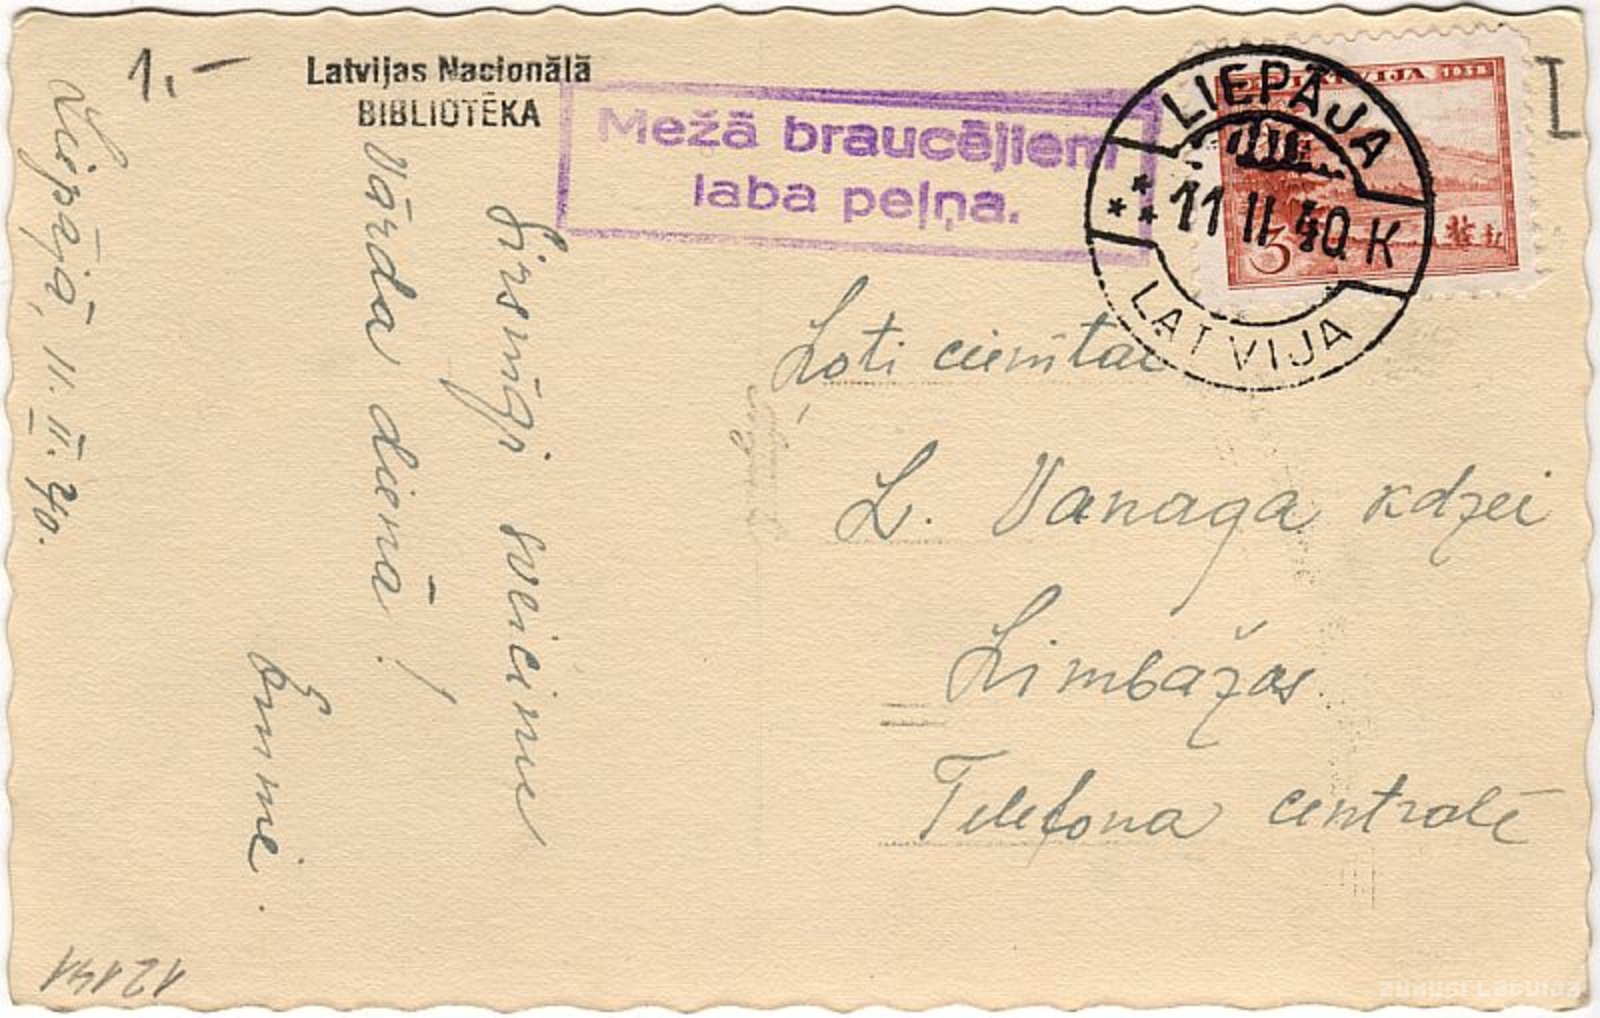 1.-
Latvijas Nacionālā
BIBLIOTĒKA
Mežā braucējiem
laba peļņa.
LATVIJA 1938
3
LIEPĀJA
11 II 40 K
LATVIJA
I
Liepājā, 11. II. 40.
Sirsnīgi sveicinu
Vārda dienā!
Emmi.
Ļoti cienītai
L. Vanaga kdzei
Limbažos.
Telefona centrālē
12141
ZUDUSI LATVIJA